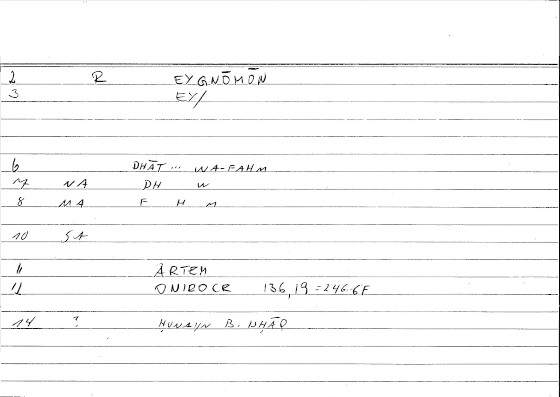 2 R EYGNŌMŌN
3 EY/
6 DHĀT... WA-FAHM
7 NA DH W
8 MA F H M
10 SA
11 ARTEM
12 ONIROCR 136,19=246.6F
14 ? ḤUNAYN B. ISḤĀQ